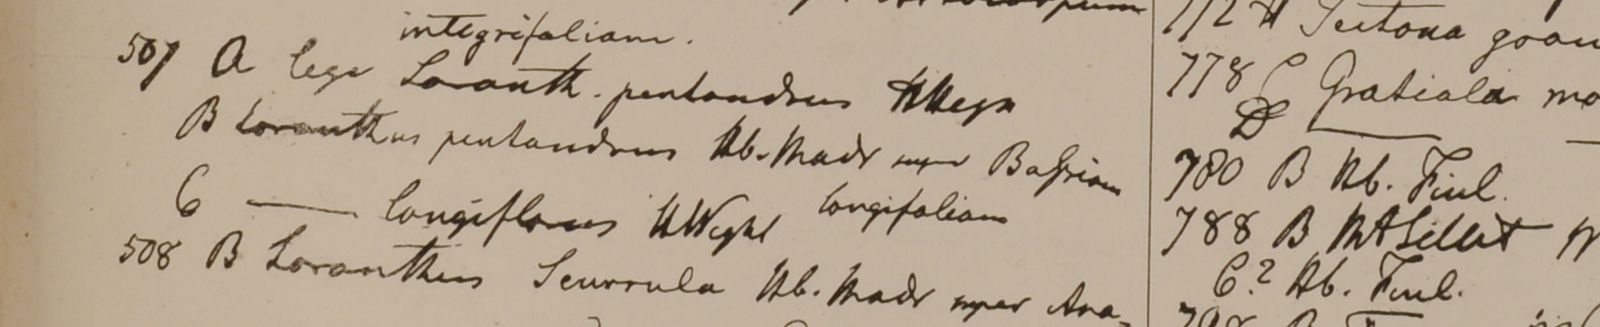 integrifoliam.
507 A lege Loranth. pentandrus HWeyn
B Loranthus pentandrus Hb. Madr super Bassiam
longifoliam
C — longiflorus HWight
508 B Loranthus Scurrula Hb. Madr super Ana-
772 H Tectona gran
778 C Gratiola mo
D —
780 B Hb. Finl.
788 B Mt Sillet
C? Hb. Finl.
798 B